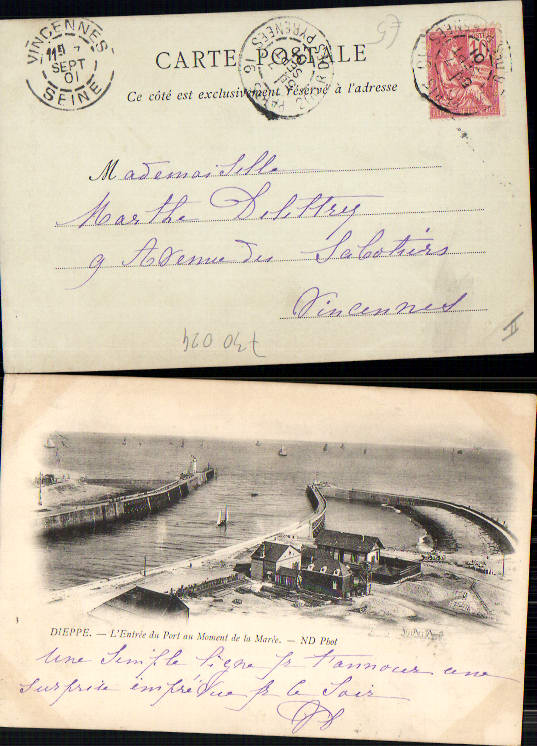 VINCENNES
SEPT
01
SEINE
CARTE POSTALE
Ce côté est exclusivement réservé à l'adresse
PYRENEES
16
10
Mademoiselle
Marthe Delettrez
9 Avenue des Sabotiers
Vincennes
730 024
II
DIEPPE. — L'Entrée du Port au Moment de la Marée. — ND Phot
Une simple ligne pr t'annoncer une
surprise imprévue pr le soir